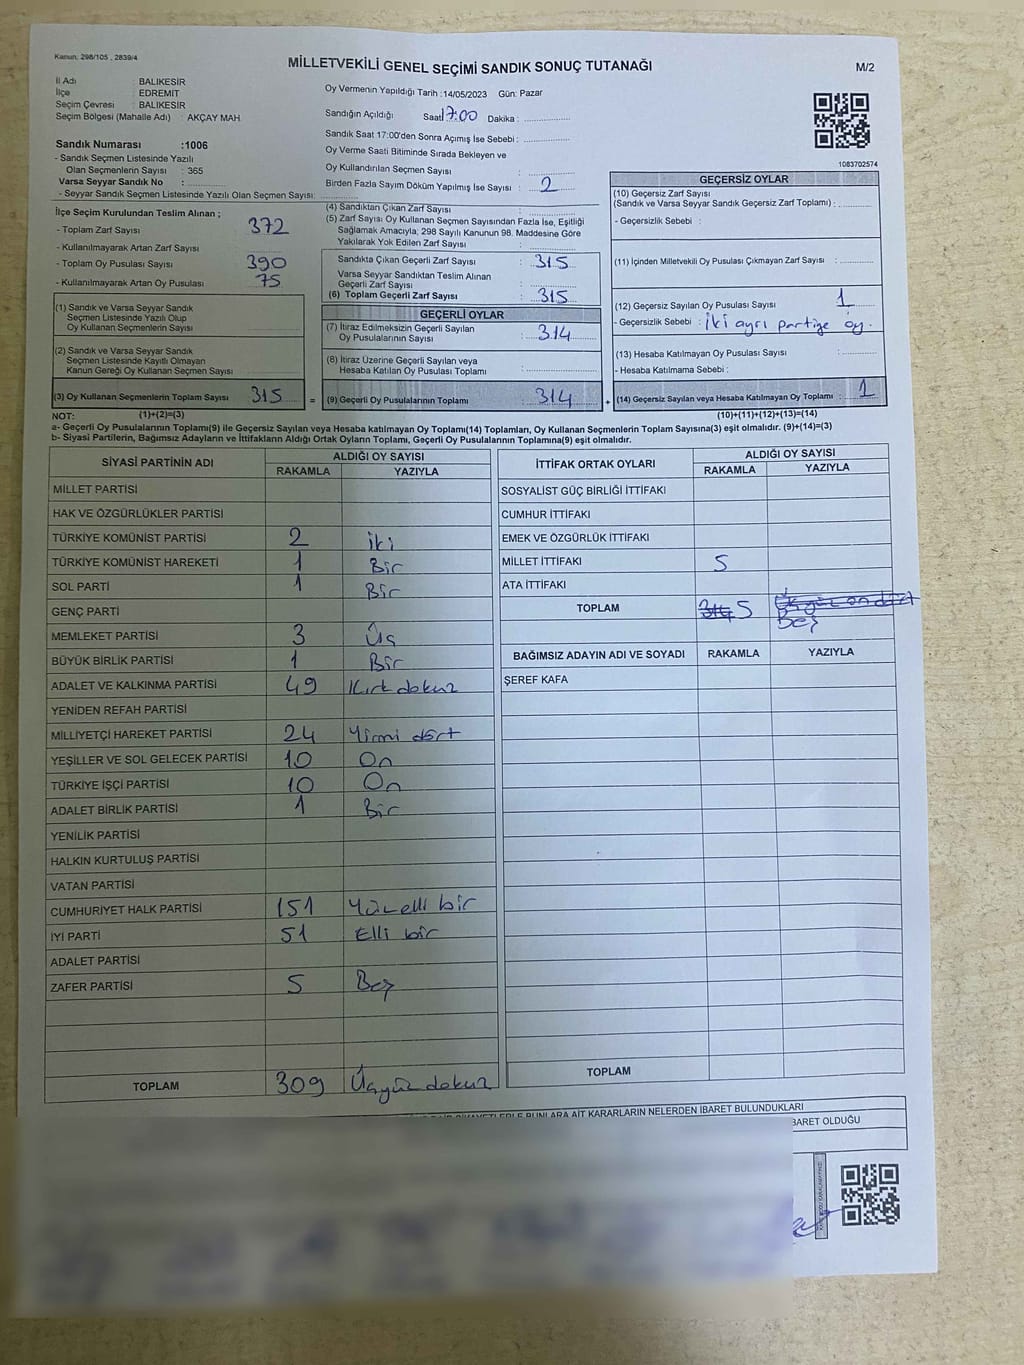 Kanun: 298/105 , 2839/4
MİLLETVEKİLİ GENEL SEÇİMİ SANDIK SONUÇ TUTANAĞI
M/2
İl Adı : BALIKESİR
İlçe : EDREMİT
Seçim Çevresi : BALIKESİR
Seçim Bölgesi (Mahalle Adı) : AKÇAY MAH.
Sandık Numarası :1006
- Sandık Seçmen Listesinde Yazılı
Olan Seçmenlerin Sayısı : 365
Varsa Seyyar Sandık No :
- Seyyar Sandık Seçmen Listesinde Yazılı Olan Seçmen Sayısı:
Oy Vermenin Yapıldığı Tarih :14/05/2023 Gün: Pazar
Sandığın Açıldığı Saat 17:00 Dakika :
Sandık Saat 17:00'den Sonra Açımış İse Sebebi :
Oy Verme Saati Bitiminde Sırada Bekleyen ve
Oy Kullandırılan Seçmen Sayısı :
Birden Fazla Sayım Döküm Yapılmış İse Sayısı : 2
1083702574
İlçe Seçim Kurulundan Teslim Alınan ;
- Toplam Zarf Sayısı 372
- Kullanılmayarak Artan Zarf Sayısı
- Toplam Oy Pusulası Sayısı 390
- Kullanılmayarak Artan Oy Pusulası : 75
(1) Sandık ve Varsa Seyyar Sandık
Seçmen Listesinde Yazılı Olup
Oy Kullanan Seçmenlerin Sayısı
(2) Sandık ve Varsa Seyyar Sandık
Seçmen Listesinde Kayıtlı Olmayan
Kanun Gereği Oy Kullanan Seçmen Sayısı
(3) Oy Kullanan Seçmenlerin Toplam Sayısı 315
=
(4) Sandıktan Çıkan Zarf Sayısı :
(5) Zarf Sayısı Oy Kullanan Seçmen Sayısından Fazla İse, Eşitliği
Sağlamak Amacıyla, 298 Sayılı Kanunun 98. Maddesine Göre
Yakılarak Yok Edilen Zarf Sayısı :
Sandıkta Çıkan Geçerli Zarf Sayısı : 315
Varsa Seyyar Sandıktan Teslim Alınan
Geçerli Zarf Sayısı :
(6) Toplam Geçerli Zarf Sayısı : 315
GEÇERLİ OYLAR
(7) İtiraz Edilmeksizin Geçerli Sayılan
Oy Pusulalarının Sayısı : 314
(8) İtiraz Üzerine Geçerli Sayılan veya
Hesaba Katılan Oy Pusulası Toplamı :
(9) Geçerli Oy Pusulalarının Toplamı 314
+
GEÇERSİZ OYLAR
(10) Geçersiz Zarf Sayısı
(Sandık ve Varsa Seyyar Sandık Geçersiz Zarf Toplamı) :
- Geçersizlik Sebebi :
(11) İçinden Milletvekili Oy Pusulası Çıkmayan Zarf Sayısı :
(12) Geçersiz Sayılan Oy Pusulası Sayısı : 1
- Geçersizlik Sebebi : İki ayrı partiye oy.
(13) Hesaba Katılmayan Oy Pusulası Sayısı :
- Hesaba Katılmama Sebebi :
(14) Geçersiz Sayılan veya Hesaba Katılmayan Oy Toplamı : 1
NOT: (1)+(2)=(3) (10)+(11)+(12)+(13)=(14)
a- Geçerli Oy Pusulalarının Toplamı(9) ile Geçersiz Sayılan veya Hesaba katılmayan Oy Toplamı(14) Toplamları, Oy Kullanan Seçmenlerin Toplam Sayısına(3) eşit olmalıdır. (9)+(14)=(3)
b- Siyasi Partilerin, Bağımsız Adayların ve İttifakların Aldığı Ortak Oyların Toplamı, Geçerli Oy Pusulalarının Toplamına(9) eşit olmalıdır.
SİYASİ PARTİNİN ADI ALDIĞI OY SAYISI
RAKAMLA YAZIYLA
MİLLET PARTİSİ
HAK VE ÖZGÜRLÜKLER PARTİSİ
TÜRKİYE KOMÜNİST PARTİSİ 2 iki
TÜRKİYE KOMÜNİST HAREKETİ 1 Bir
SOL PARTİ 1 Bir
GENÇ PARTİ
MEMLEKET PARTİSİ 3 Üç
BÜYÜK BİRLİK PARTİSİ 1 Bir
ADALET VE KALKINMA PARTİSİ 49 Kırk dokuz
YENİDEN REFAH PARTİSİ
MİLLİYETÇİ HAREKET PARTİSİ 24 Yirmi dört
YEŞİLLER VE SOL GELECEK PARTİSİ 10 On
TÜRKİYE İŞÇİ PARTİSİ 10 On
ADALET BİRLİK PARTİSİ 1 Bir
YENİLİK PARTİSİ
HALKIN KURTULUŞ PARTİSİ
VATAN PARTİSİ
CUMHURİYET HALK PARTİSİ 151 Yüzelli bir
İYİ PARTİ 51 Elli bir
ADALET PARTİSİ
ZAFER PARTİSİ 5 Beş
TOPLAM 309 Üçyüz dokuz
İTTİFAK ORTAK OYLARI ALDIĞI OY SAYISI
RAKAMLA YAZIYLA
SOSYALİST GÜÇ BİRLİĞİ İTTİFAKI
CUMHUR İTTİFAKI
EMEK VE ÖZGÜRLÜK İTTİFAKI
MİLLET İTTİFAKI 5
ATA İTTİFAKI
TOPLAM 314 5 Üçyüz ondört
Beş
BAĞIMSIZ ADAYIN ADI VE SOYADI RAKAMLA YAZIYLA
ŞEREF KAFA
TOPLAM
BUNLARA AİT KARARLARIN NELERDEN İBARET BULUNDUKLARI
BARET OLDUĞU